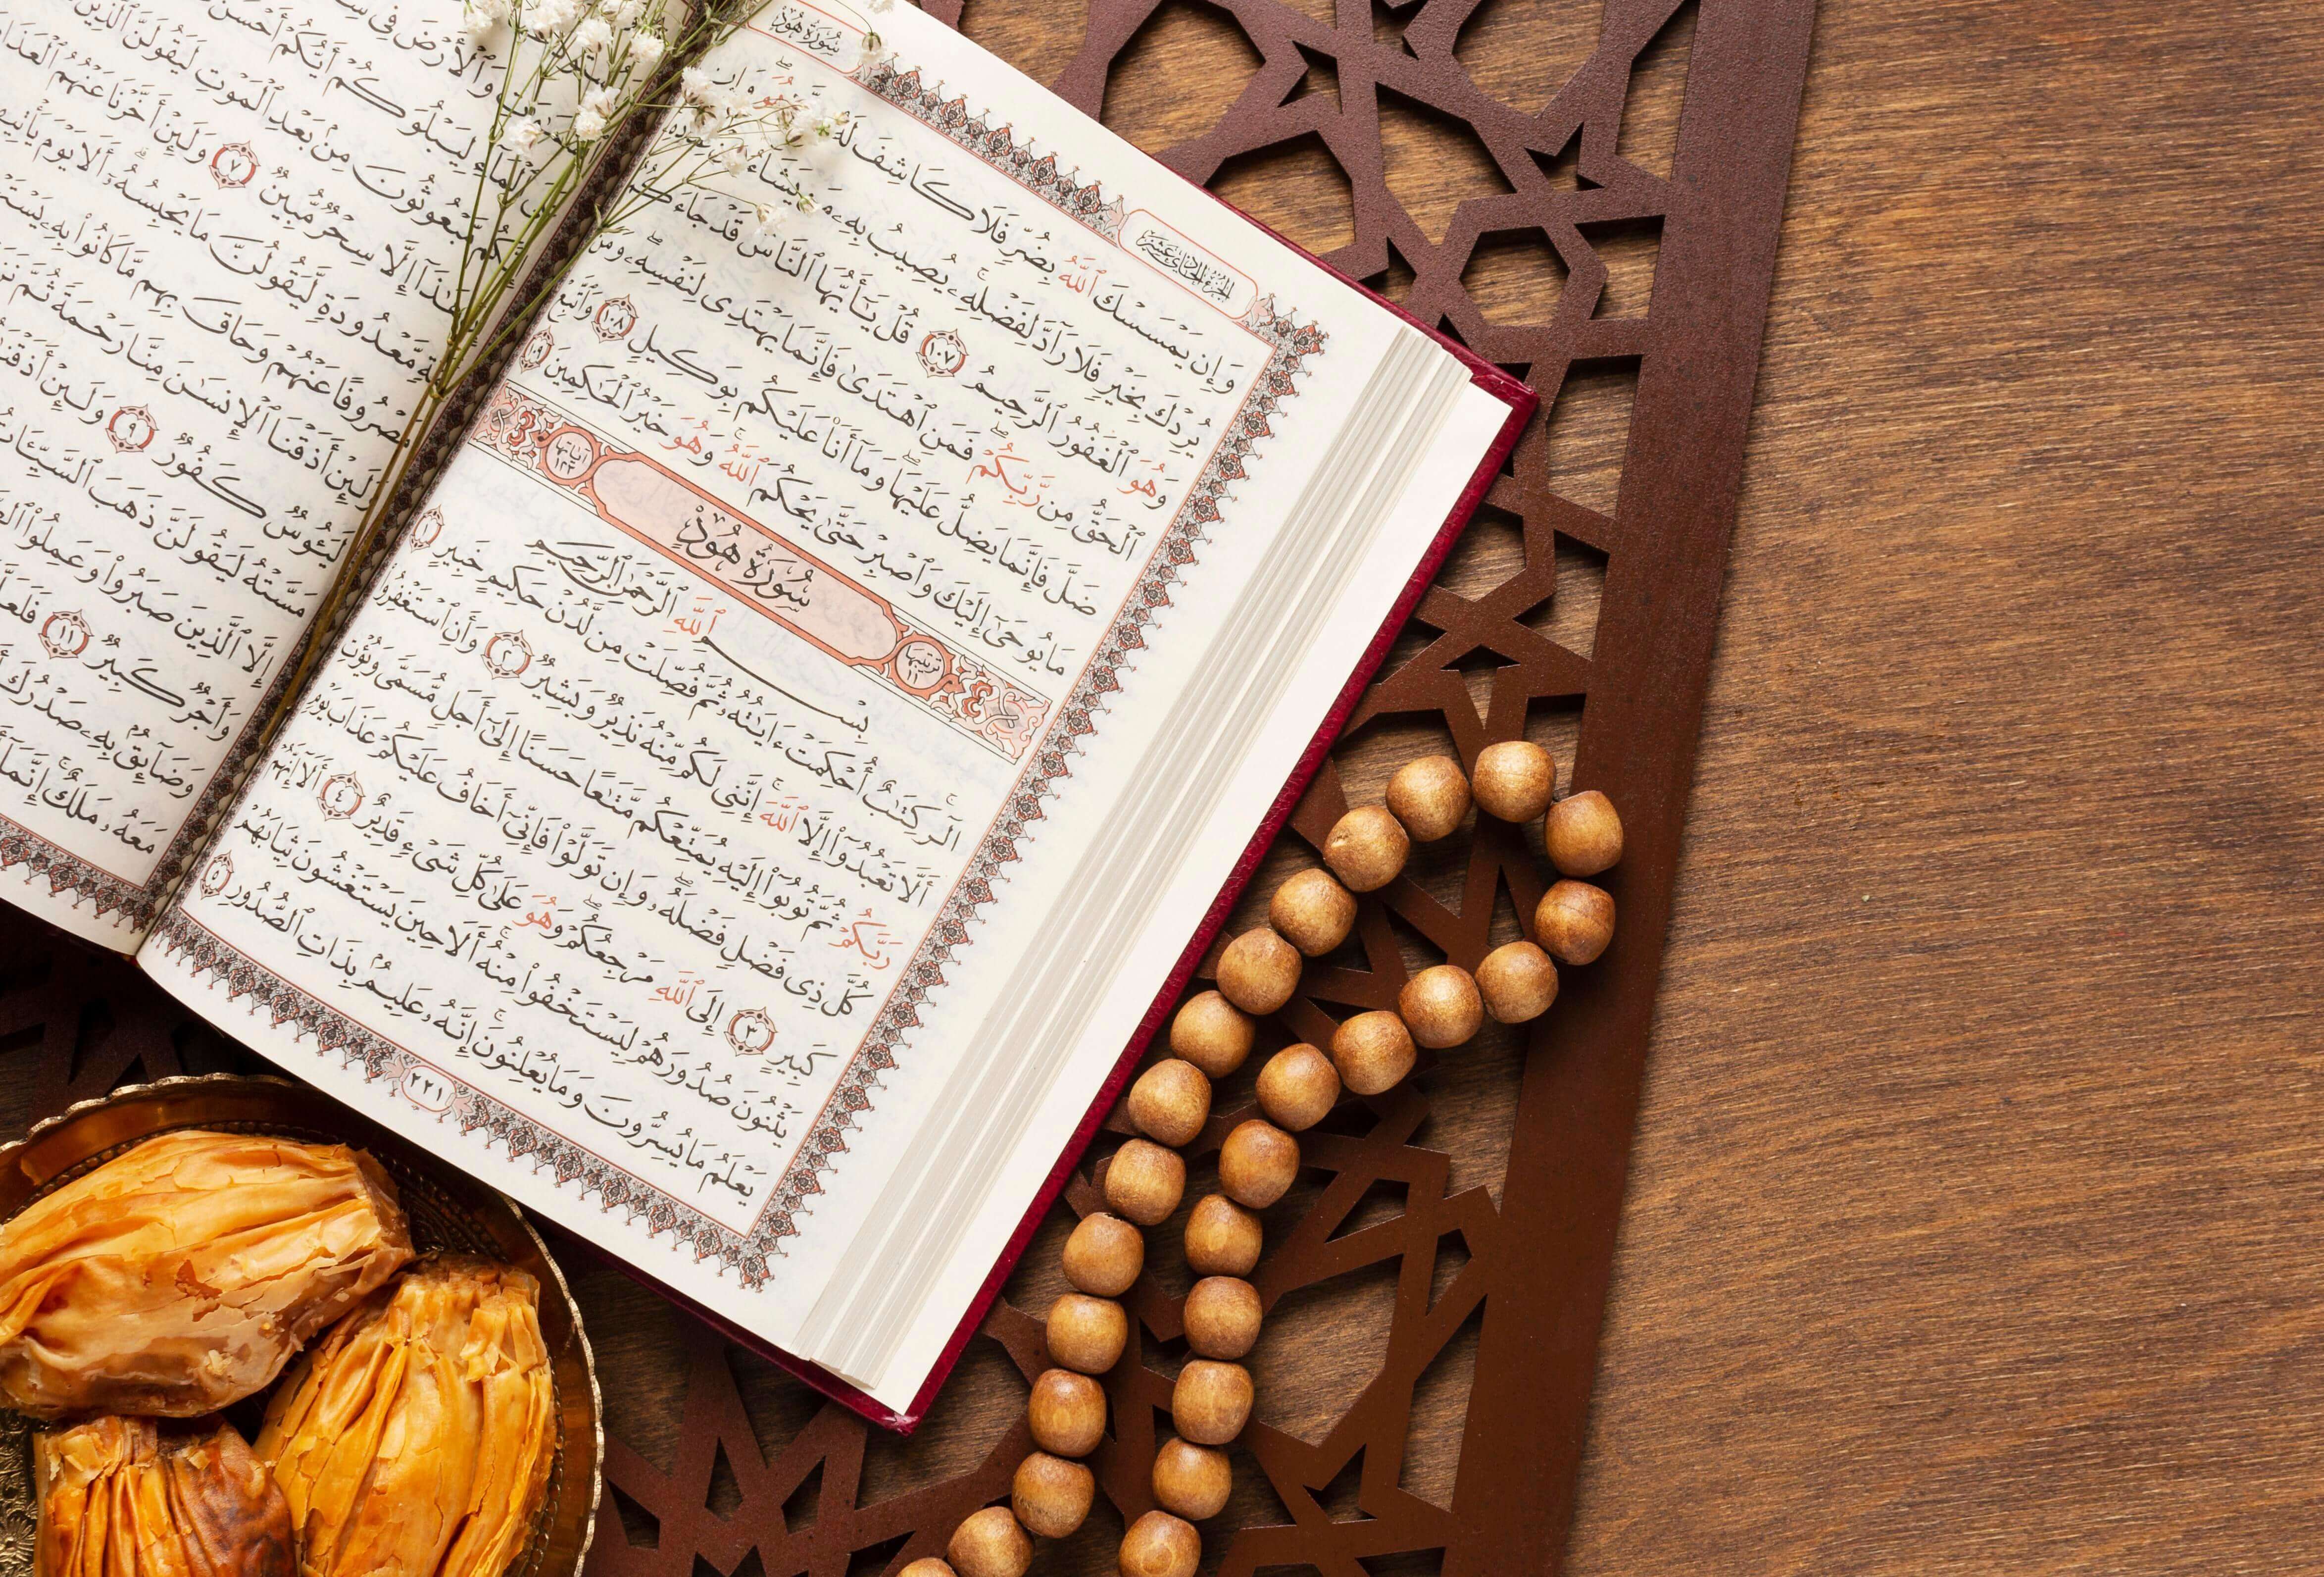 سُورَةُ هُودٍ
الجزء الحادي عشر
وَإِن يَمْسَسْكَ ٱللَّهُ بِضُرٍّ فَلَا كَاشِفَ لَهُۥٓ هُوَ ۖ وَإِن
يُرِدْكَ بِخَيْرٍ فَلَا رَآدَّ لِفَضْلِهِۦ ۚ يُصِيبُ بِهِۦ مَن يَشَآءُ
وَهُوَ ٱلْغَفُورُ ٱلرَّحِيمُ ١٠٧ قُلْ يَـٰٓأَيُّهَا ٱلنَّاسُ قَدْ جَآءَكُمُ
ٱلْحَقُّ مِن رَّبِّكُمْ ۖ فَمَنِ ٱهْتَدَىٰ فَإِنَّمَا يَهْتَدِى لِنَفْسِهِۦ ۖ وَمَن
ضَلَّ فَإِنَّمَا يَضِلُّ عَلَيْهَا ۖ وَمَآ أَنَا۠ عَلَيْكُم بِوَكِيلٍ ١٠٨ وَٱتَّبِعْ
مَا يُوحَىٰٓ إِلَيْكَ وَٱصْبِرْ حَتَّىٰ يَحْكُمَ ٱللَّهُ ۚ وَهُوَ خَيْرُ ٱلْحَـٰكِمِينَ ١٠٩
ترتيبها ١١ سُورَةُ هُودٍ آياتها ١٢٣
بِسْمِ ٱللَّهِ ٱلرَّحْمَـٰنِ ٱلرَّحِيمِ
الٓر ۚ كِتَـٰبٌ أُحْكِمَتْ ءَايَـٰتُهُۥ ثُمَّ فُصِّلَتْ مِن لَّدُنْ حَكِيمٍ خَبِيرٍ ١
أَلَّا تَعْبُدُوٓا۟ إِلَّا ٱللَّهَ ۚ إِنَّنِى لَكُم مِّنْهُ نَذِيرٌ وَبَشِيرٌ ٢ وَأَنِ ٱسْتَغْفِرُوا۟
رَبَّكُمْ ثُمَّ تُوبُوٓا۟ إِلَيْهِ يُمَتِّعْكُم مَّتَـٰعًا حَسَنًا إِلَىٰٓ أَجَلٍ مُّسَمًّى وَيُؤْتِ
كُلَّ ذِى فَضْلٍ فَضْلَهُۥ ۖ وَإِن تَوَلَّوْا۟ فَإِنِّىٓ أَخَافُ عَلَيْكُمْ عَذَابَ يَوْمٍ
كَبِيرٍ ٣ إِلَى ٱللَّهِ مَرْجِعُكُمْ ۖ وَهُوَ عَلَىٰ كُلِّ شَىْءٍ قَدِيرٌ ٤ أَلَآ إِنَّهُمْ
يَثْنُونَ صُدُورَهُمْ لِيَسْتَخْفُوا۟ مِنْهُ ۚ أَلَا حِينَ يَسْتَغْشُونَ ثِيَابَهُمْ
يَعْلَمُ مَا يُسِرُّونَ وَمَا يُعْلِنُونَ ۚ إِنَّهُۥ عَلِيمٌۢ بِذَاتِ ٱلصُّدُورِ ٥
٢٢١
وَٱلْأَرْضَ فِى
ٱلْمَآءِ لِيَبْلُوَكُمْ أَيُّكُمْ أَحْسَنُ
مَّبْعُوثُونَ مِنۢ بَعْدِ ٱلْمَوْتِ لَيَقُولَنَّ ٱلَّذِينَ
هَـٰذَآ إِلَّا سِحْرٌ مُّبِينٌ ٧ وَلَئِنْ أَخَّرْنَا عَنْهُمُ ٱلْعَذَابَ
مَّعْدُودَةٍ لَّيَقُولُنَّ مَا يَحْبِسُهُۥٓ ۗ أَلَا يَوْمَ يَأْتِيهِمْ
مَصْرُوفًا عَنْهُمْ وَحَاقَ بِهِم مَّا كَانُوا۟ بِهِۦ
وَلَئِنْ أَذَقْنَا ٱلْإِنسَـٰنَ مِنَّا رَحْمَةً ثُمَّ
لَيَـُٔوسٌ كَفُورٌ ٩ وَلَئِنْ
مَسَّتْهُ لَيَقُولَنَّ ذَهَبَ ٱلسَّيِّـَٔاتُ
إِلَّا ٱلَّذِينَ صَبَرُوا۟ وَعَمِلُوا۟
وَأَجْرٌ كَبِيرٌ ١١
وَضَآئِقٌۢ بِهِۦ صَدْرُكَ
مَعَهُۥ مَلَكٌ ۚ إِنَّمَآ